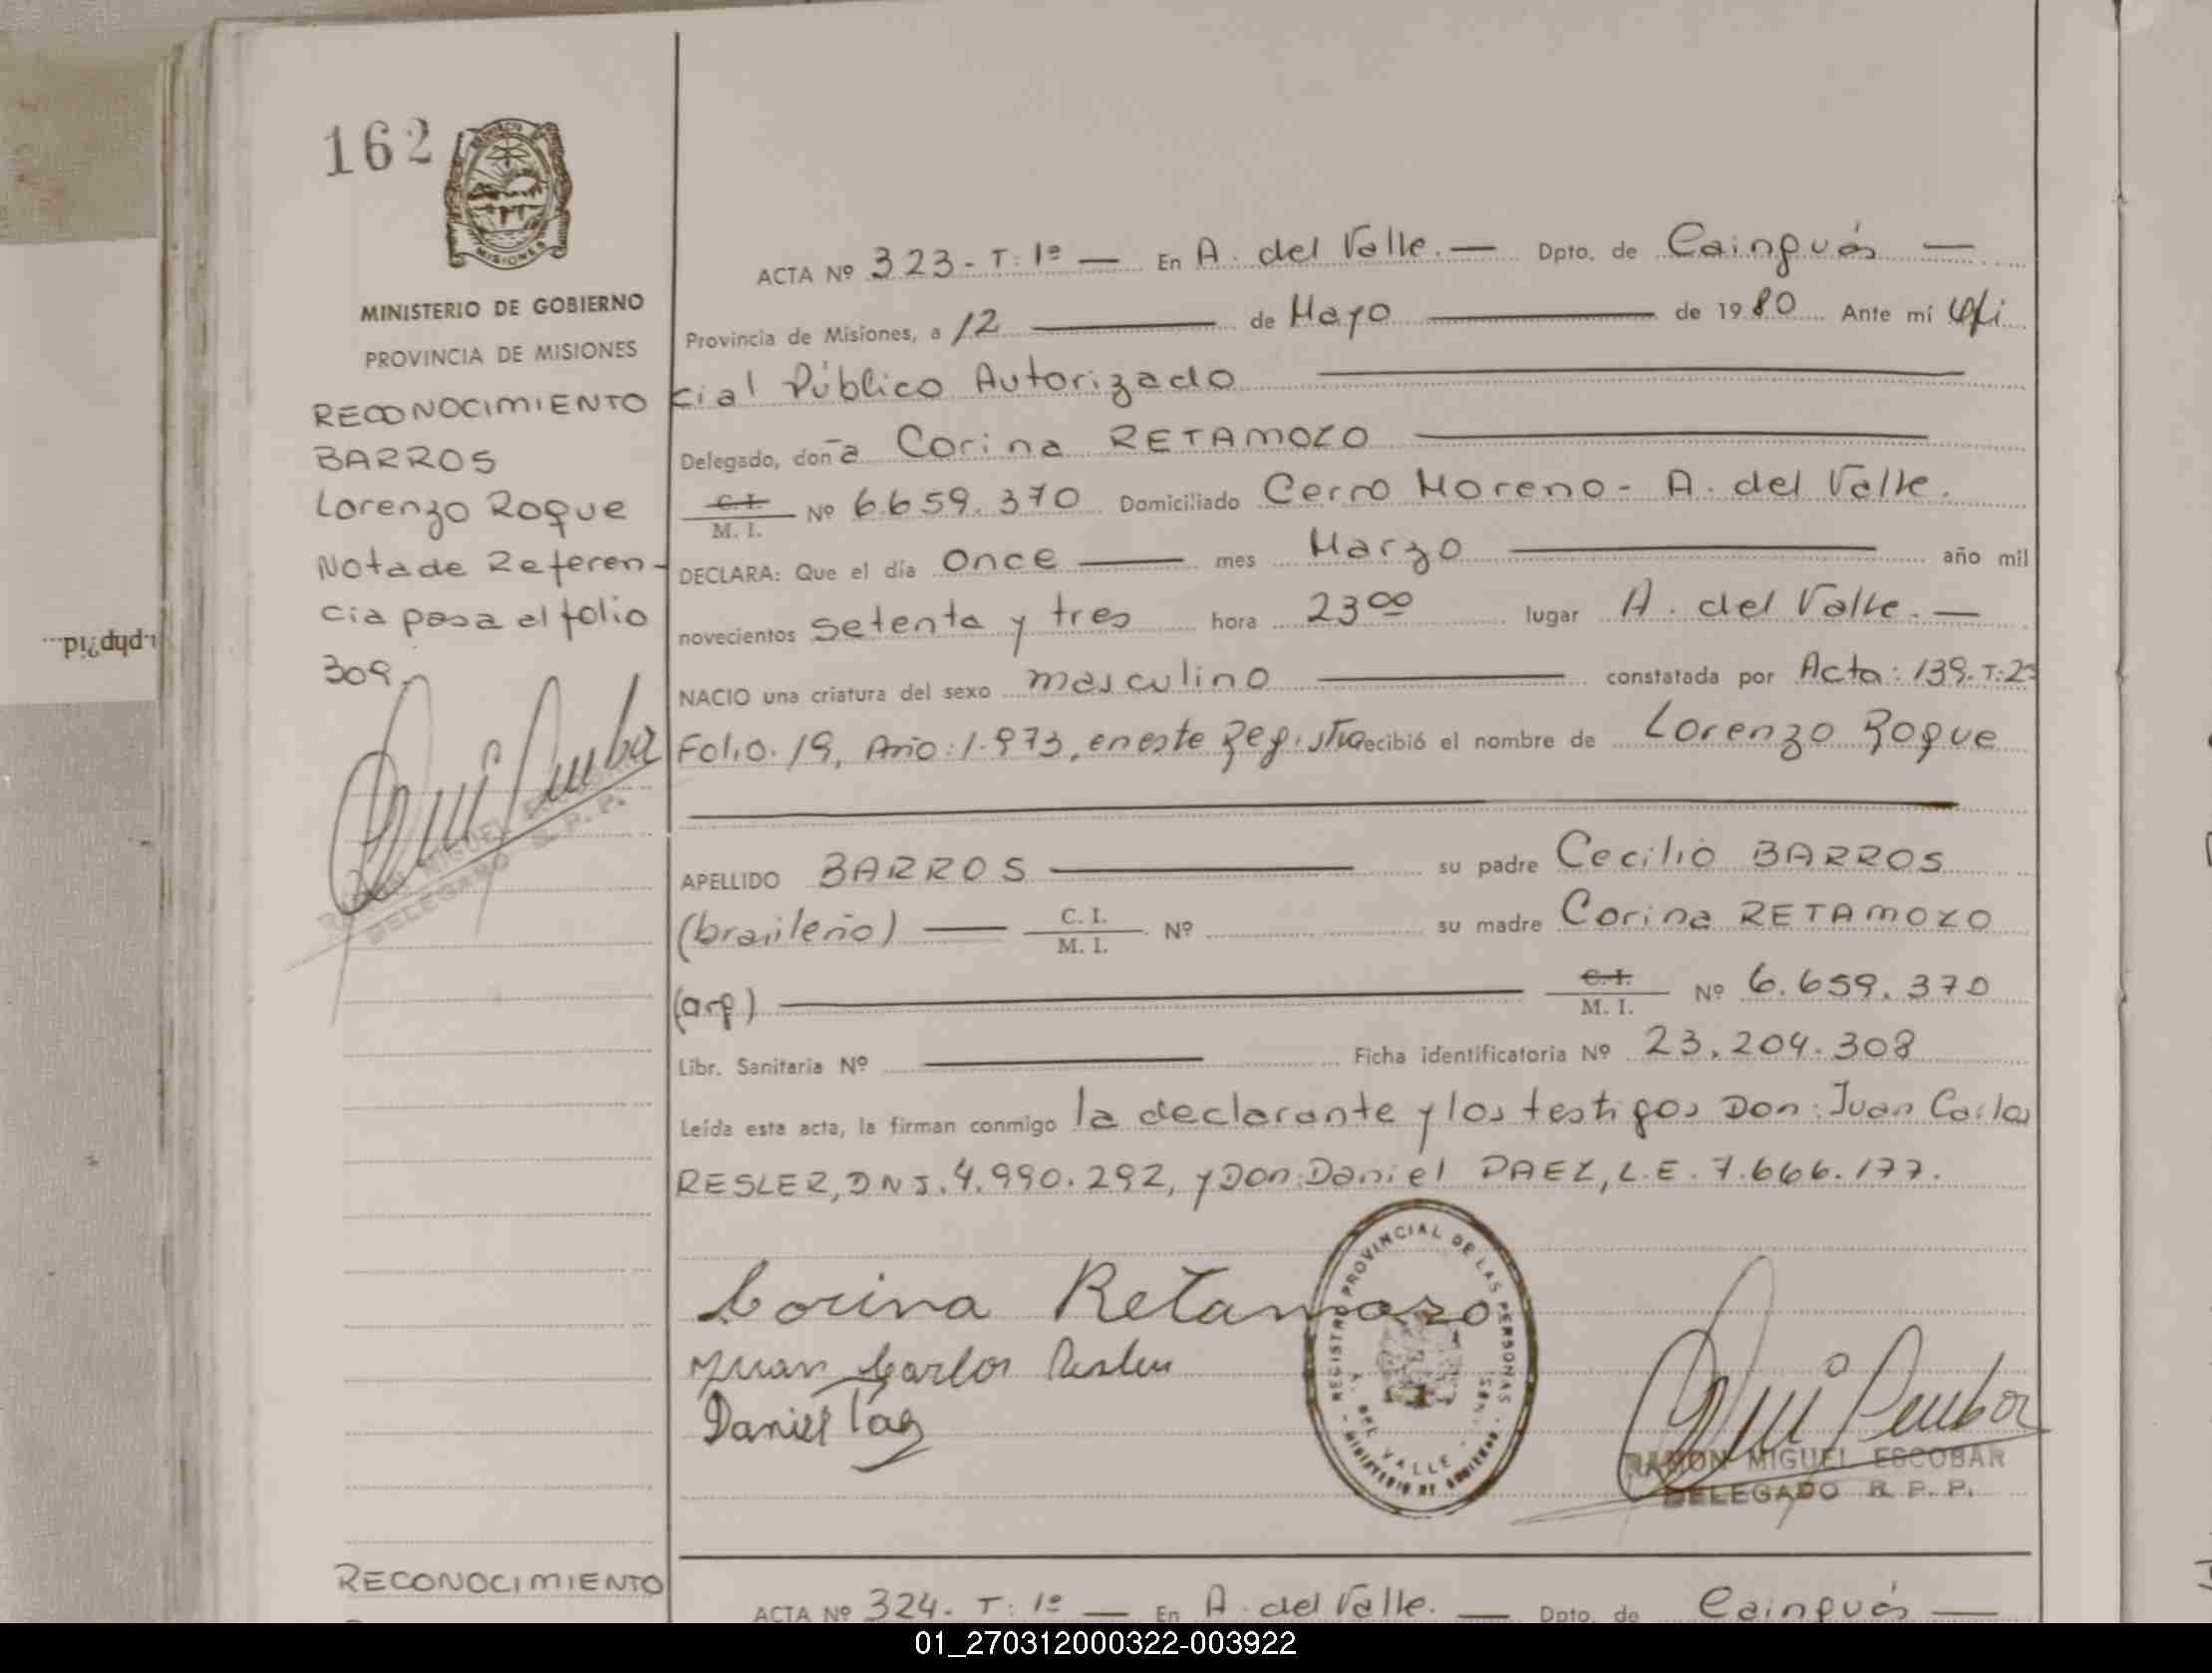 162
MISIONES
MINISTERIO DE GOBIERNO
PROVINCIA DE MISIONES
RECONOCIMIENTO
BARROS
Lorenzo Roque
Nota de Referen-
cia pasa al folio
309.
RAMON MIGUEL ESCOBAR
DELEGADO R. P. P.
...php?id...
ACTA Nº 323 - T: 1º — En A. del Valle. — Dpto. de Cainguás —
Provincia de Misiones, a 12 — de Mayo — de 1980 Ante mi Ofi
cial Público Autorizado
Delegado, doña Corina RETAMOZO
C. I. / M. I. Nº 6.659.370 Domiciliado Cerro Moreno - A. del Valle.
DECLARA: Que el día once — mes Marzo — año mil
novecientos setenta y tres hora 23 00 lugar A. del Valle. —
NACIO una criatura del sexo masculino — constatada por Acta: 139. T: 2º
Folio. 19, Año: 1.973, en este Registro recibió el nombre de Lorenzo Roque
APELLIDO BARROS — su padre Cecilio BARROS
(brasileño) — C. I. / M. I. Nº su madre Corina RETAMOZO
(arg) — C. I. / M. I. Nº 6.659.370
Libr. Sanitaria Nº — Ficha identificatoria Nº 23.204.308
Leída esta acta, la firman conmigo la declarante y los testigos Don: Juan Carlos
RESLER, DNI. 4.990.292, y Don: Daniel PAEZ, L.E. 7.666.177.
Corina Retamozo
Juan Carlos Resler
Daniel Paez
REGISTRO PROVINCIAL DE LAS PERSONAS
A. DEL VALLE
MINISTERIO DE GOBIERNO
RAMON MIGUEL ESCOBAR
DELEGADO R. P. P.
RECONOCIMIENTO
ACTA Nº 324. T: 1º — En A. del Valle. — Dpto. de Cainguás —
01_270312000322-003922